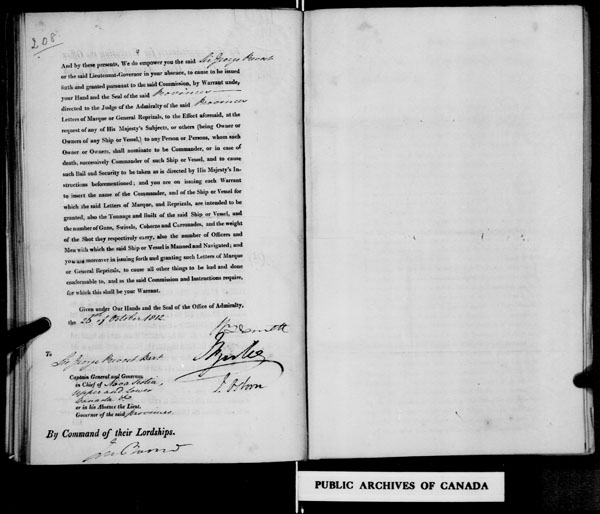 208
And by these presents, We do empower you the said Sir George Prevost
or the said Lieutenant-Governor in your absence, to cause to be issued
forth and granted pursuant to the said Commission, by Warrant under
your Hand and the Seal of the said Provinces
directed to the Judge of the Admiralty of the said Provinces
Letters of Marque or General Reprizals, to the Effect aforesaid, at the
request of any of His Majesty's Subjects, or others (being Owner or
Owners of any Ship or Vessel,) to any Person or Persons, whom such
Owner or Owners, shall nominate to be Commander, or in case of
death, successively Commander of such Ship or Vessel, and to cause
such Bail and Security to be taken as is directed by His Majesty's In-
structions beforementioned; and you are on issuing each Warrant
to insert the name of the Commander, and of the Ship or Vessel for
which the said Letters of Marque, and Reprizals, are intended to be
granted, also the Tonnage and Built of the said Ship or Vessel, and
the number of Guns, Swivels, Cohorns and Carronades, and the weight
of the Shot they respectively carry, also the number of Officers and
Men with which the said Ship or Vessel is Manned and Navigated; and
you are moreover in issuing forth and granting such Letters of Marque
or General Reprizals, to cause all other things to be had and done
conformable to, and as the said Commission and Instructions require,
for which this shall be your Warrant.
Given under Our Hands and the Seal of the Office of Admiralty,
the 25th of October 1812
To
Sir George Prevost Bart
J. Osborn
Captain General and Governor
in Chief of Nova Scotia,
Upper and Lower
Canada &c
or in his Absence the Lieut.
Governor of the said Provinces
By Command of their Lordships.
PUBLIC ARCHIVES OF CANADA